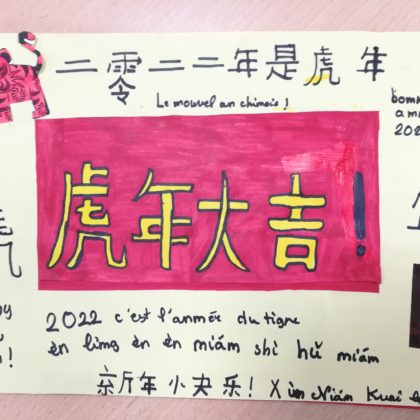 二零二二年是虎年
Le nouvel an chinois !
bonn
ann
202
虎年大吉!
2022 c'est l'année du tigre
èn ling èn èn nián shì hǔ nián
新年快乐! Xin Nián Kuai